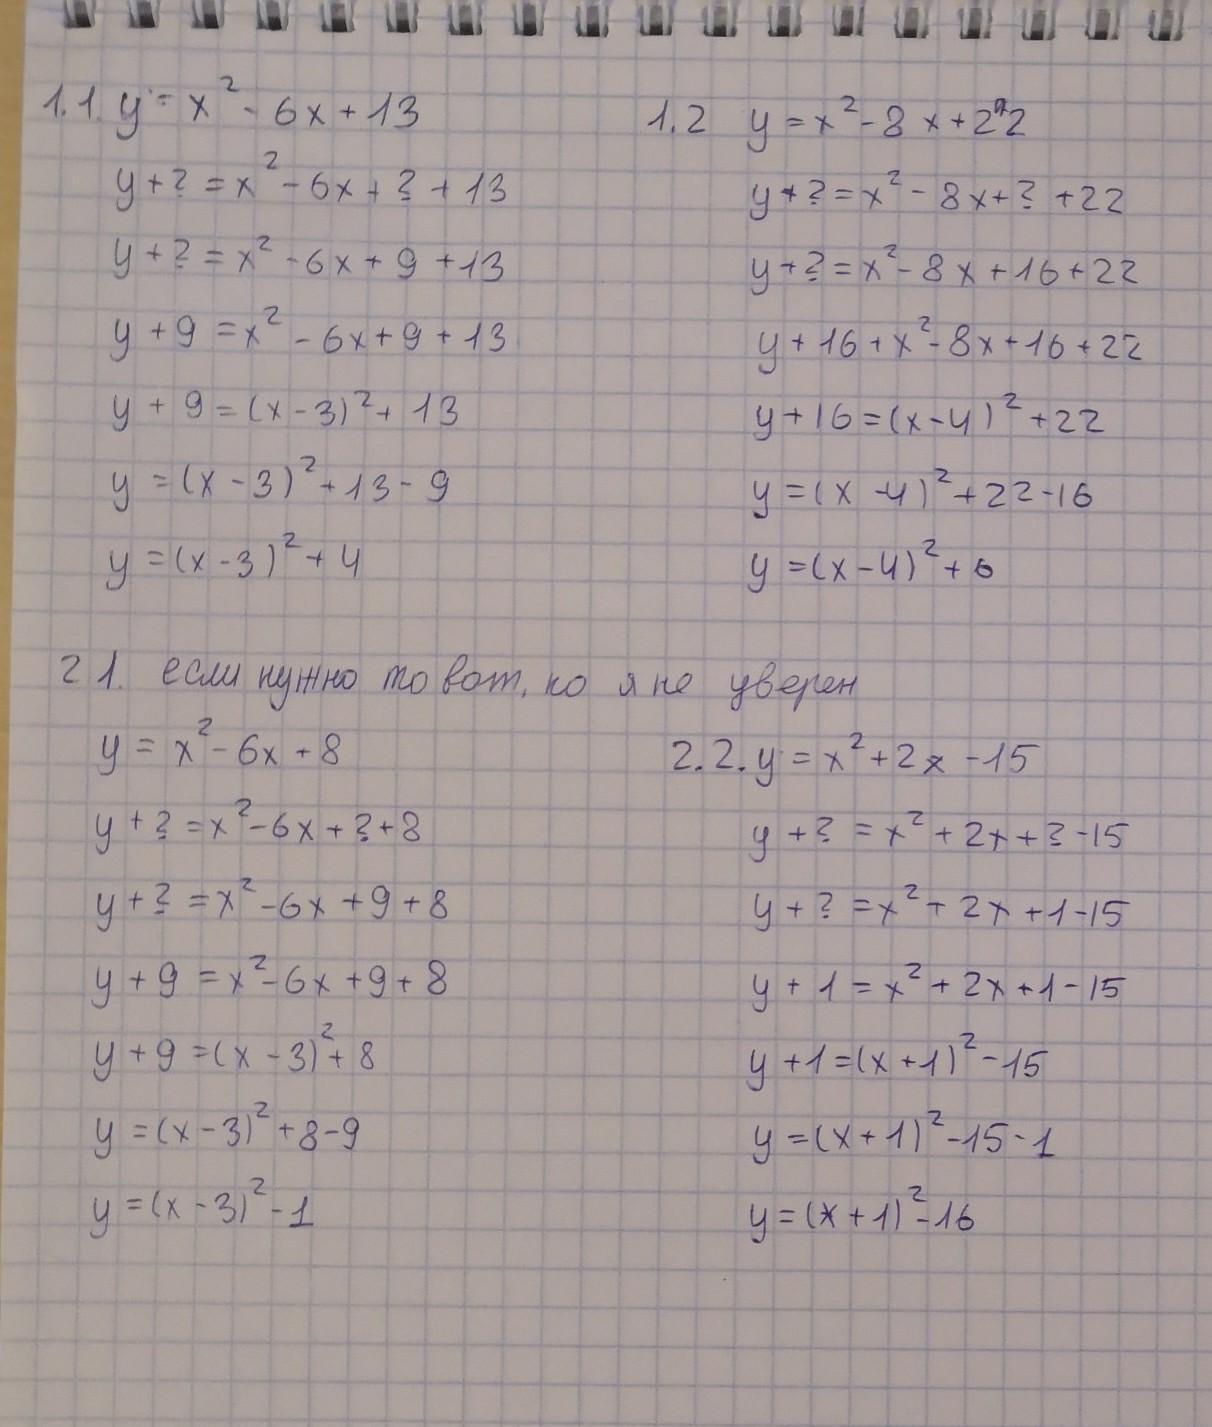 1.1. y = x² - 6x + 13
y + ? = x² - 6x + ? + 13
y + ? = x² - 6x + 9 + 13
y + 9 = x² - 6x + 9 + 13
y + 9 = (x - 3)² + 13
y = (x - 3)² + 13 - 9
y = (x - 3)² + 4
1.2 y = x² - 8x + 22
y + ? = x² - 8x + ? + 22
y + ? = x² - 8x + 16 + 22
y + 16 + x² - 8x + 16 + 22
y + 16 = (x - 4)² + 22
y = (x - 4)² + 22 - 16
y = (x - 4)² + 6
2 1. если нужно то вот, но я не уверен
y = x² - 6x + 8
y + ? = x² - 6x + ? + 8
y + ? = x² - 6x + 9 + 8
y + 9 = x² - 6x + 9 + 8
y + 9 = (x - 3)² + 8
y = (x - 3)² + 8 - 9
y = (x - 3)² - 1
2.2. y = x² + 2x - 15
y + ? = x² + 2x + ? - 15
y + ? = x² + 2x + 1 - 15
y + 1 = x² + 2x + 1 - 15
y + 1 = (x + 1)² - 15
y = (x + 1)² - 15 - 1
y = (x + 1)² - 16